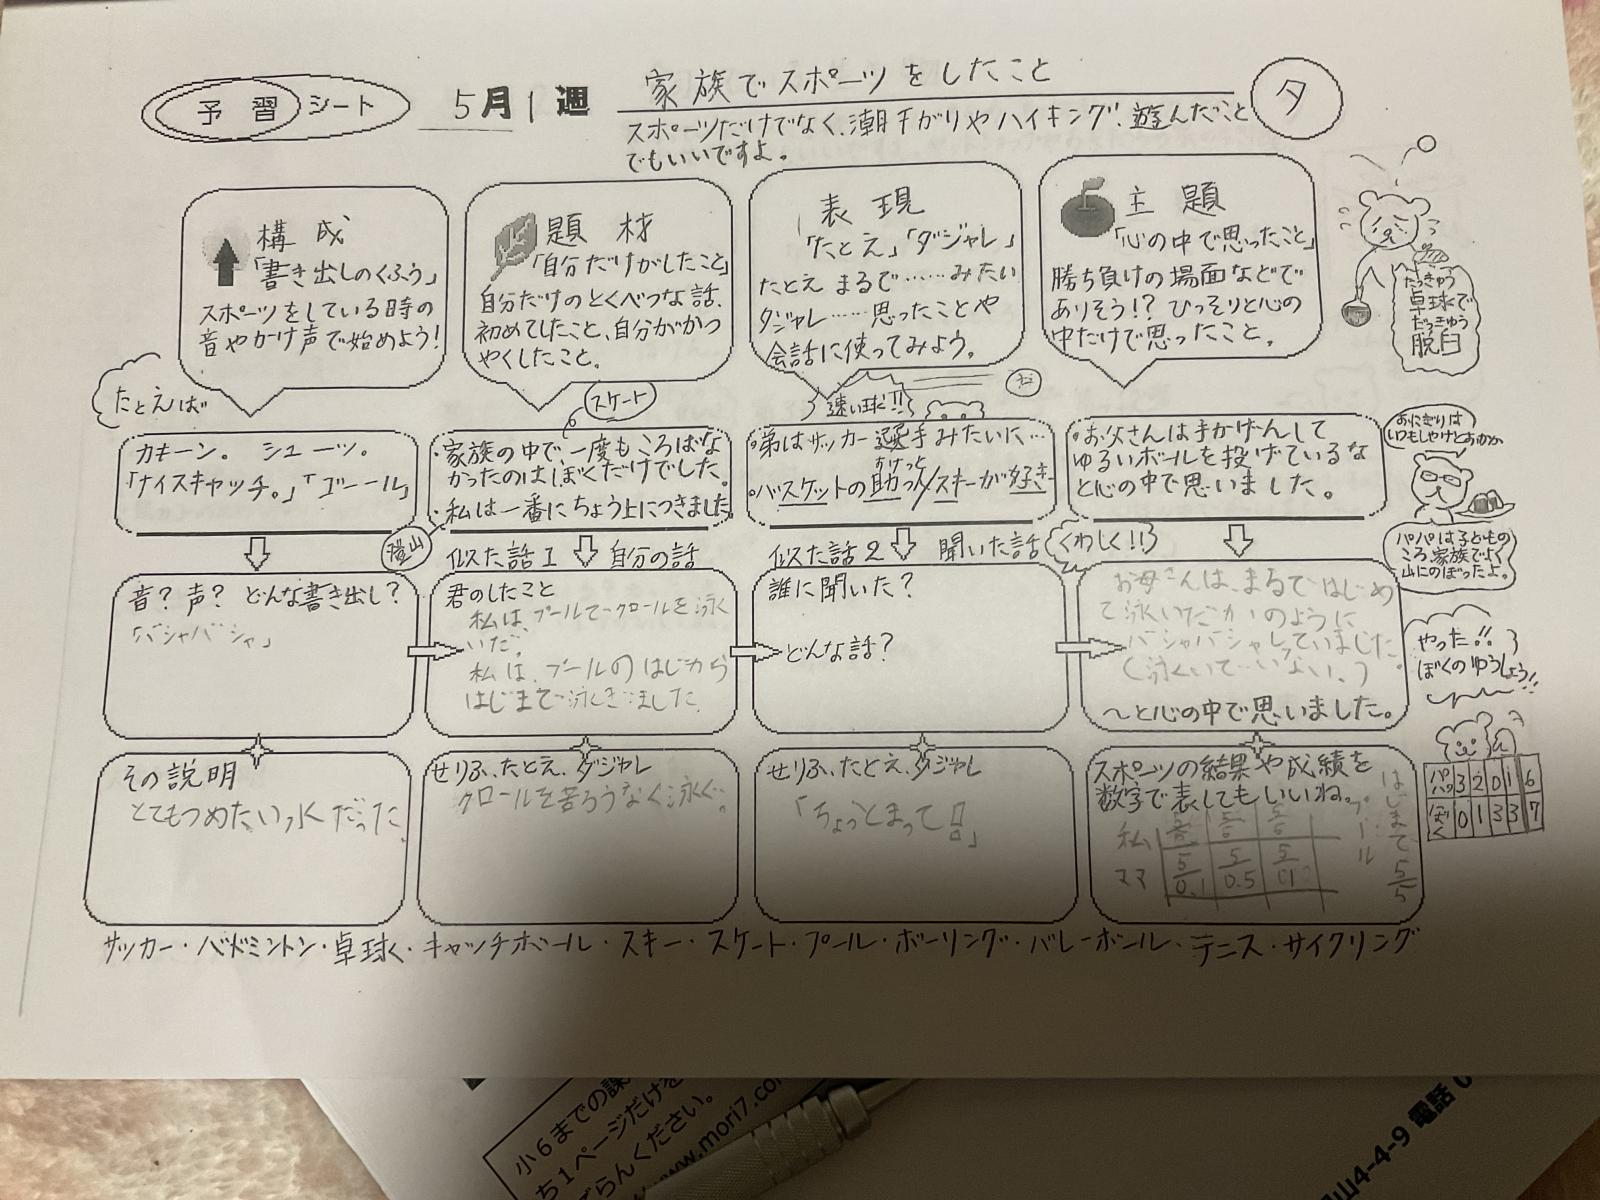 予習シート
5月1週
家族でスポーツをしたこと
スポーツだけでなく、潮干がりやハイキング、遊んだこと
でもいいですよ。
タ
構成
「書き出しのくふう」
スポーツをしている時の
音やかけ声で始めよう!
題材
「自分だけがしたこと」
自分だけのとくべつな話、
初めてしたこと、自分がかつ
やくしたこと。
表現
「たとえ」「ダジャレ」
たとえ まるで……みたい
ダジャレ……思ったことや
会話に使ってみよう。
主題
「心の中で思ったこと」
勝ち負けの場面などで
ありそう!? ひっそりと心の
中だけで思ったこと。
たっきゅう
卓球で
だっきゅう
脱臼
たとえば
カキーン。 シューッ。
「ナイスキャッチ。」「ゴール」
スケート
・家族の中で、一度もころばな
かったのはぼくだけでした。
・私は一番にちょう上につきました
登山
速い球!!
・弟はサッカー選手みたいに…
おけっと
・バスケットの助っ人/スキーが好き
・お父さんは手かげんして
ゆるいボールを投げているな
と心の中で思いました。
おにぎりは
いつもしゃけとおかか
パパは子どもの
ころ、家族でよく
山にのぼったよ。
音?声? どんな書き出し?
「バシャバシャ」
似た話1 自分の話
君のしたこと
私は、プールでクロールを泳
いだ。
私は、プールのはじから
はじまで泳ぎました。
似た話2 聞いた話
誰に聞いた?
どんな話?
くわしく!!
お母さんは、まるではじめ
て泳いだかのように
バシャバシャしていました。
(泳いで…いない。)
〜と心の中で思いました。
やった!!
ぼくのゆうしょう!!
その説明
とてもつめたい水だった
せりふ、たとえ、ダジャレ
クロールを苦ろうなく泳ぐ。
せりふ、たとえ、ダジャレ
「ちょっとまって!!」
スポーツの結果や成績を
数字で表してもいいね。
私
ママ 5/0.1 5/0.5
プール
はじまで 5/5
パパ 3 2 0 1 6
ぼく 0 1 3 3 7
サッカー・バドミントン・卓球・キャッチボール・スキー・スケート・プール・ボーリング・バレーボール・テニス・サイクリング
小6までの課
ち1ページだけを
ごらんください。
www.mori7.co
山4-4-9 電話 0